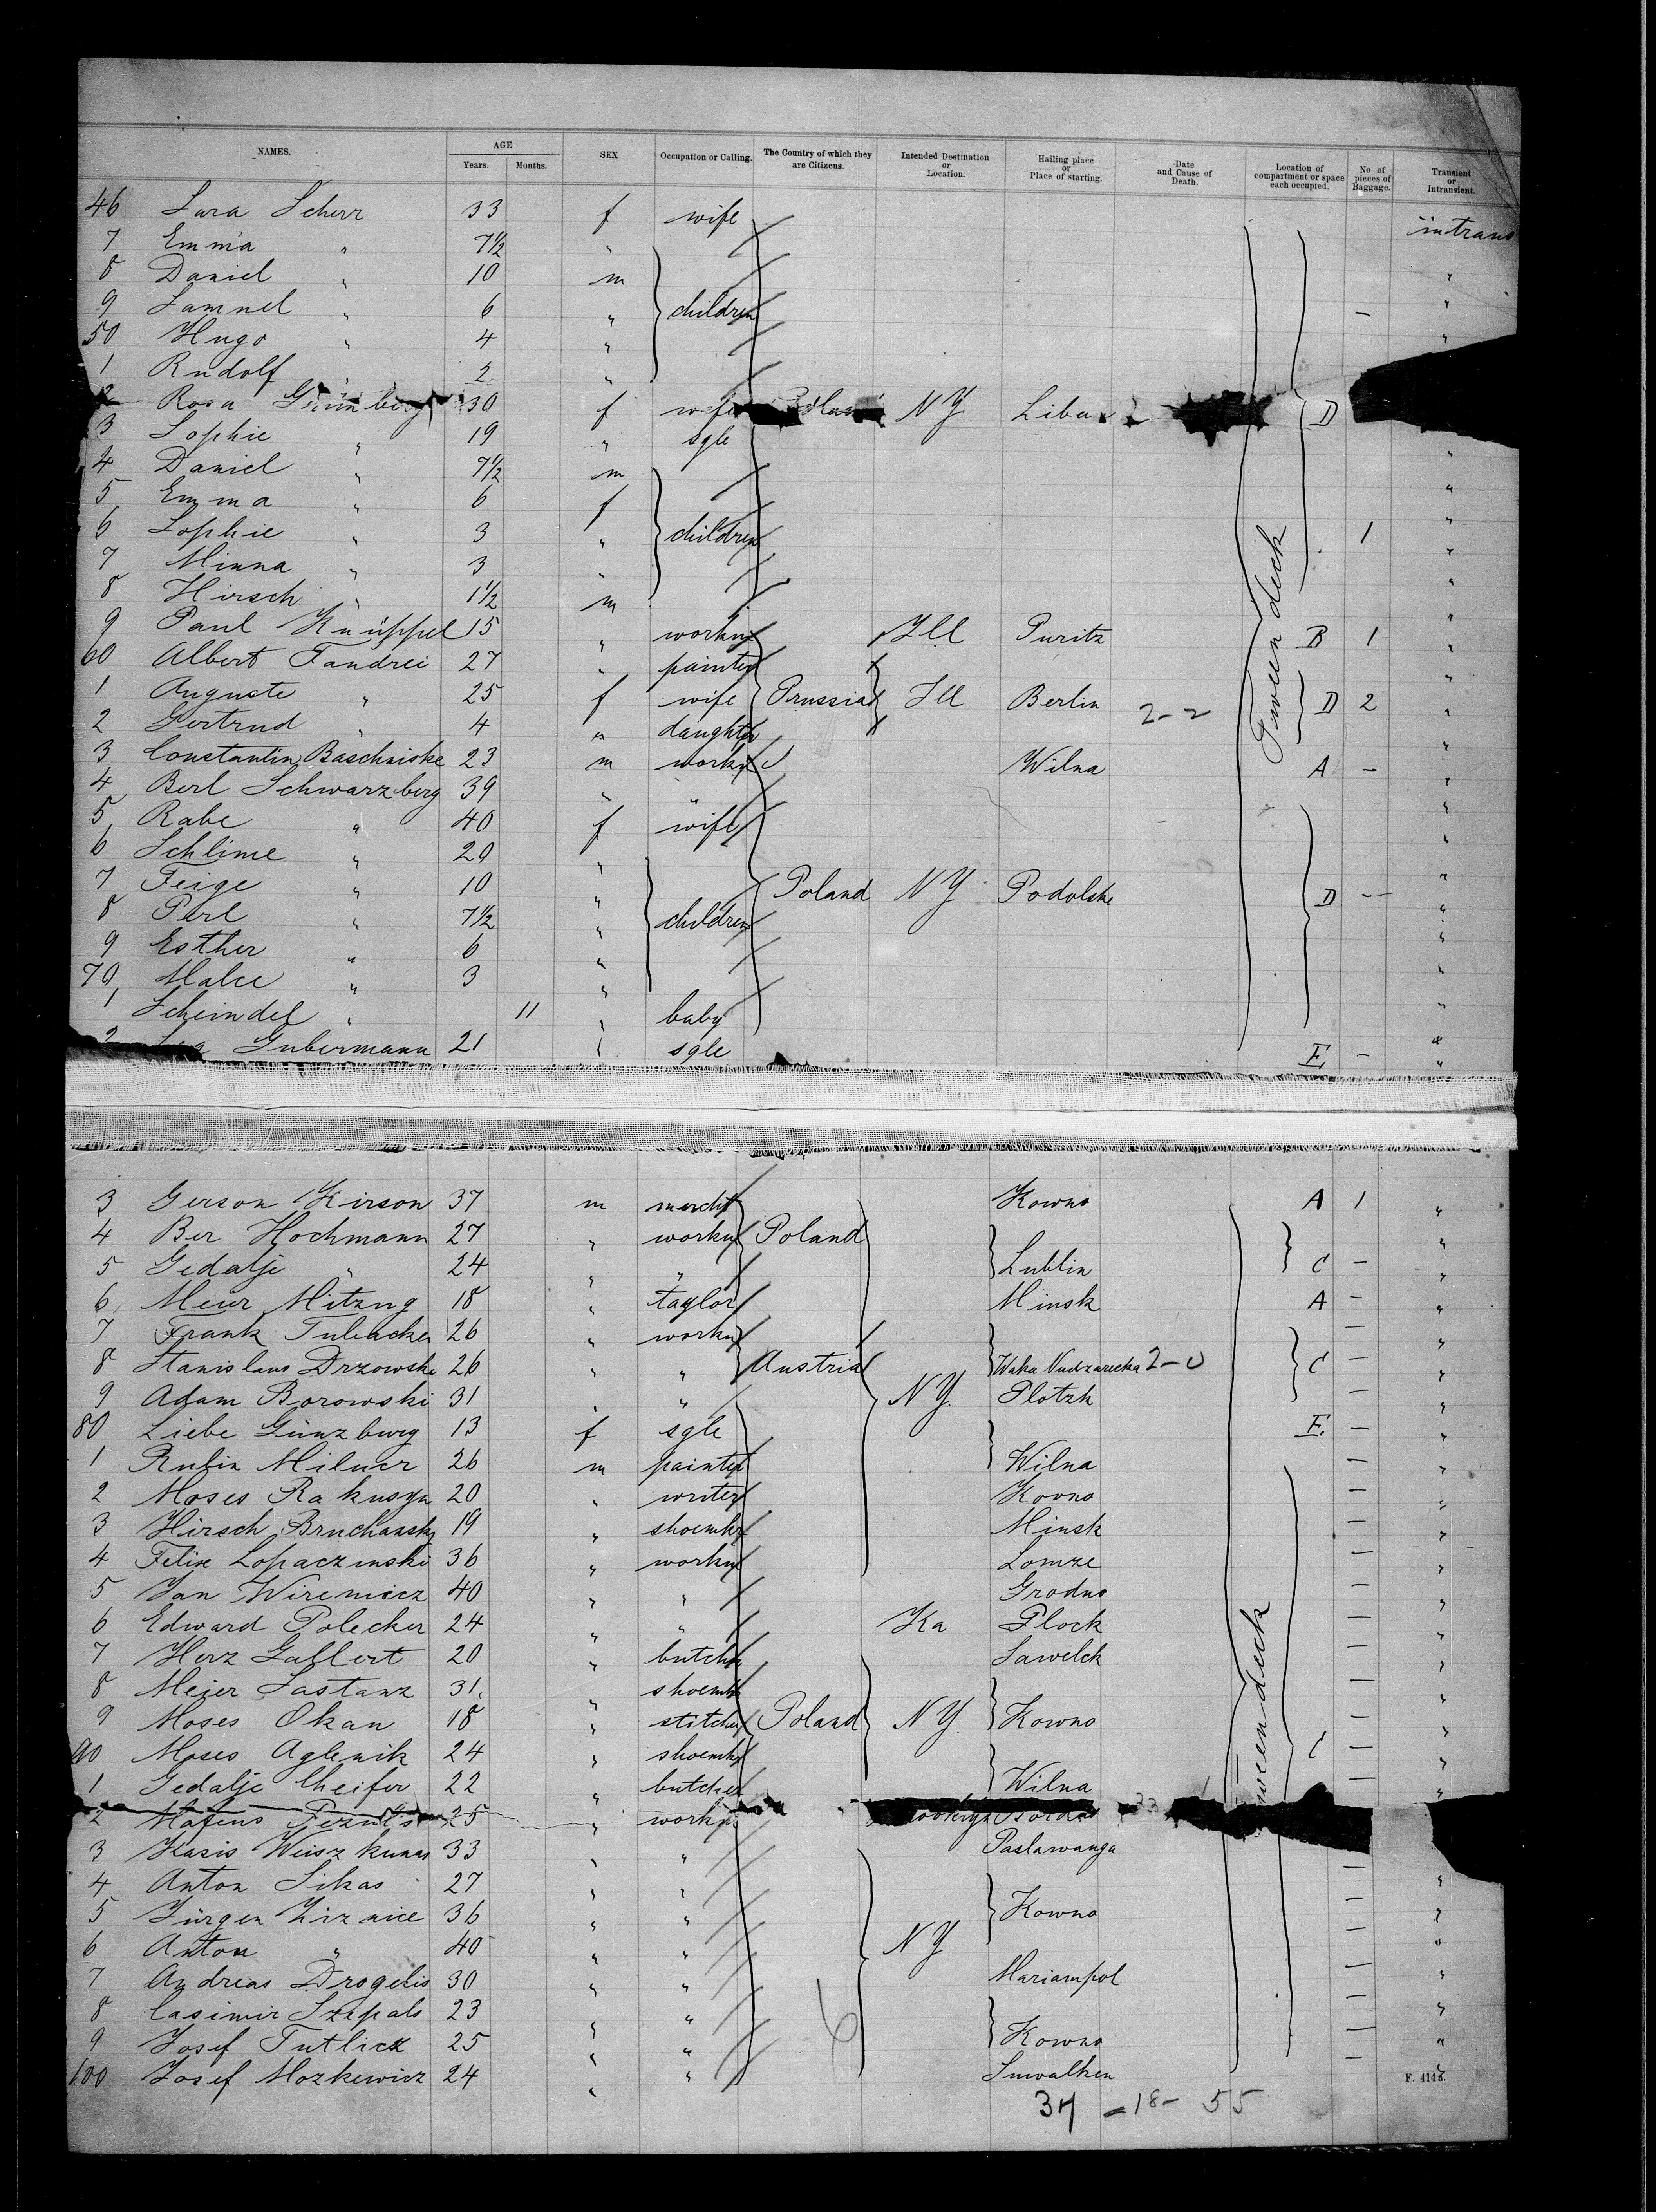 NAMES. AGE Years. Months. SEX Occupation or Calling. The Country of which they are Citizens. Intended Destination or Location. Hailing place or Place of starting. Date and Cause of Death. Location of compartment or space each occupied. No of pieces of Baggage. Transient or Intransient.
46 Sara Scherr 33 f wife intrans
7 Emma " 7½ " "
8 Daniel " 10 m "
9 Samuel " 6 " children - "
50 Hugo " 4 "
1 Rudolf " 2 "
2 Rosa Grünberg 30 f wife NY Libau D
3 Sophie " 19 " sgle "
4 Daniel " 7½ m "
5 Emma " 6 f "
6 Sophie " 3 " children 1 "
7 Minna " 3 " "
8 Hirsch " 1½ m "
9 Paul Knüppel 15 " workm Ill Puritz B 1 "
60 Albert Fandrei 27 " painter "
1 Auguste " 25 f wife Prussia Ill Berlin 2-2 Tween deck D 2 "
2 Gertrud " 4 " daughter "
3 Constantin Baschniske 23 m workm Wilna A - "
4 Berl Schwarzberg 39 " " "
5 Rabe " 40 f wife "
6 Schlime " 20 " "
7 Feige " 10 " Poland NY Podolske D - "
8 Perl " 7½ " children "
9 Esther " 6 " "
70 Malce " 3 " "
1 Scheindel " 11 " baby "
2 Gubermann 21 " sgle E. - "
3 Gerson Kirson 37 m mercht Kowno A 1 "
4 Ber Hochmann 27 " workm Poland "
5 Gedalje " 24 " " Lublin C - "
6 Meur Mitzng 18 " taylor Minsk A - "
7 Frank Tubacker 26 " workm - "
8 Stanislaus Drzowske 26 " " Austria Waka Nudzarecka 2-0 C - "
9 Adam Borowski 31 " " NY. Plotzk - "
80 Liebe Günzburg 13 f sgle E. - "
1 Rubin Milner 26 m painter Wilna - "
2 Moses Rakusyn 20 " writer Kovno - "
3 Hirsch Bruchansky 19 " shoemkr Minsk - "
4 Felix Lopaczinski 36 " workm Lomze - "
5 Jan Wiremicz 40 " " Grodno - "
6 Edward Polecker 24 " " Ka Plock - "
7 Herz Gallert 20 " butchr Sawelck - "
8 Meier Sastanz 31 " shoemk - "
9 Moses Okan 18 " stitcher Poland NY Kowno - "
90 Moses Aglenik 24 " shoemkr C - "
1 Gedalje Cheifer 22 " butcher Wilna Tween deck - "
2 25 " workm
3 Kasis Weiszkunas 33 " " Paslawanga
4 Anton Sikas 27 " " - "
5 Jürgen Ziznice 36 " " Kowno - "
6 Anton " 40 " " NY - "
7 Andreas Drogelis 30 " " Mariampol - "
8 Casimir Szepals 23 " " - "
9 Josef Tutlick 25 " " Kowno - "
100 Josef Mozkewicz 24 " " Suwalken - "
F. 4143.
37 - 18 - 55